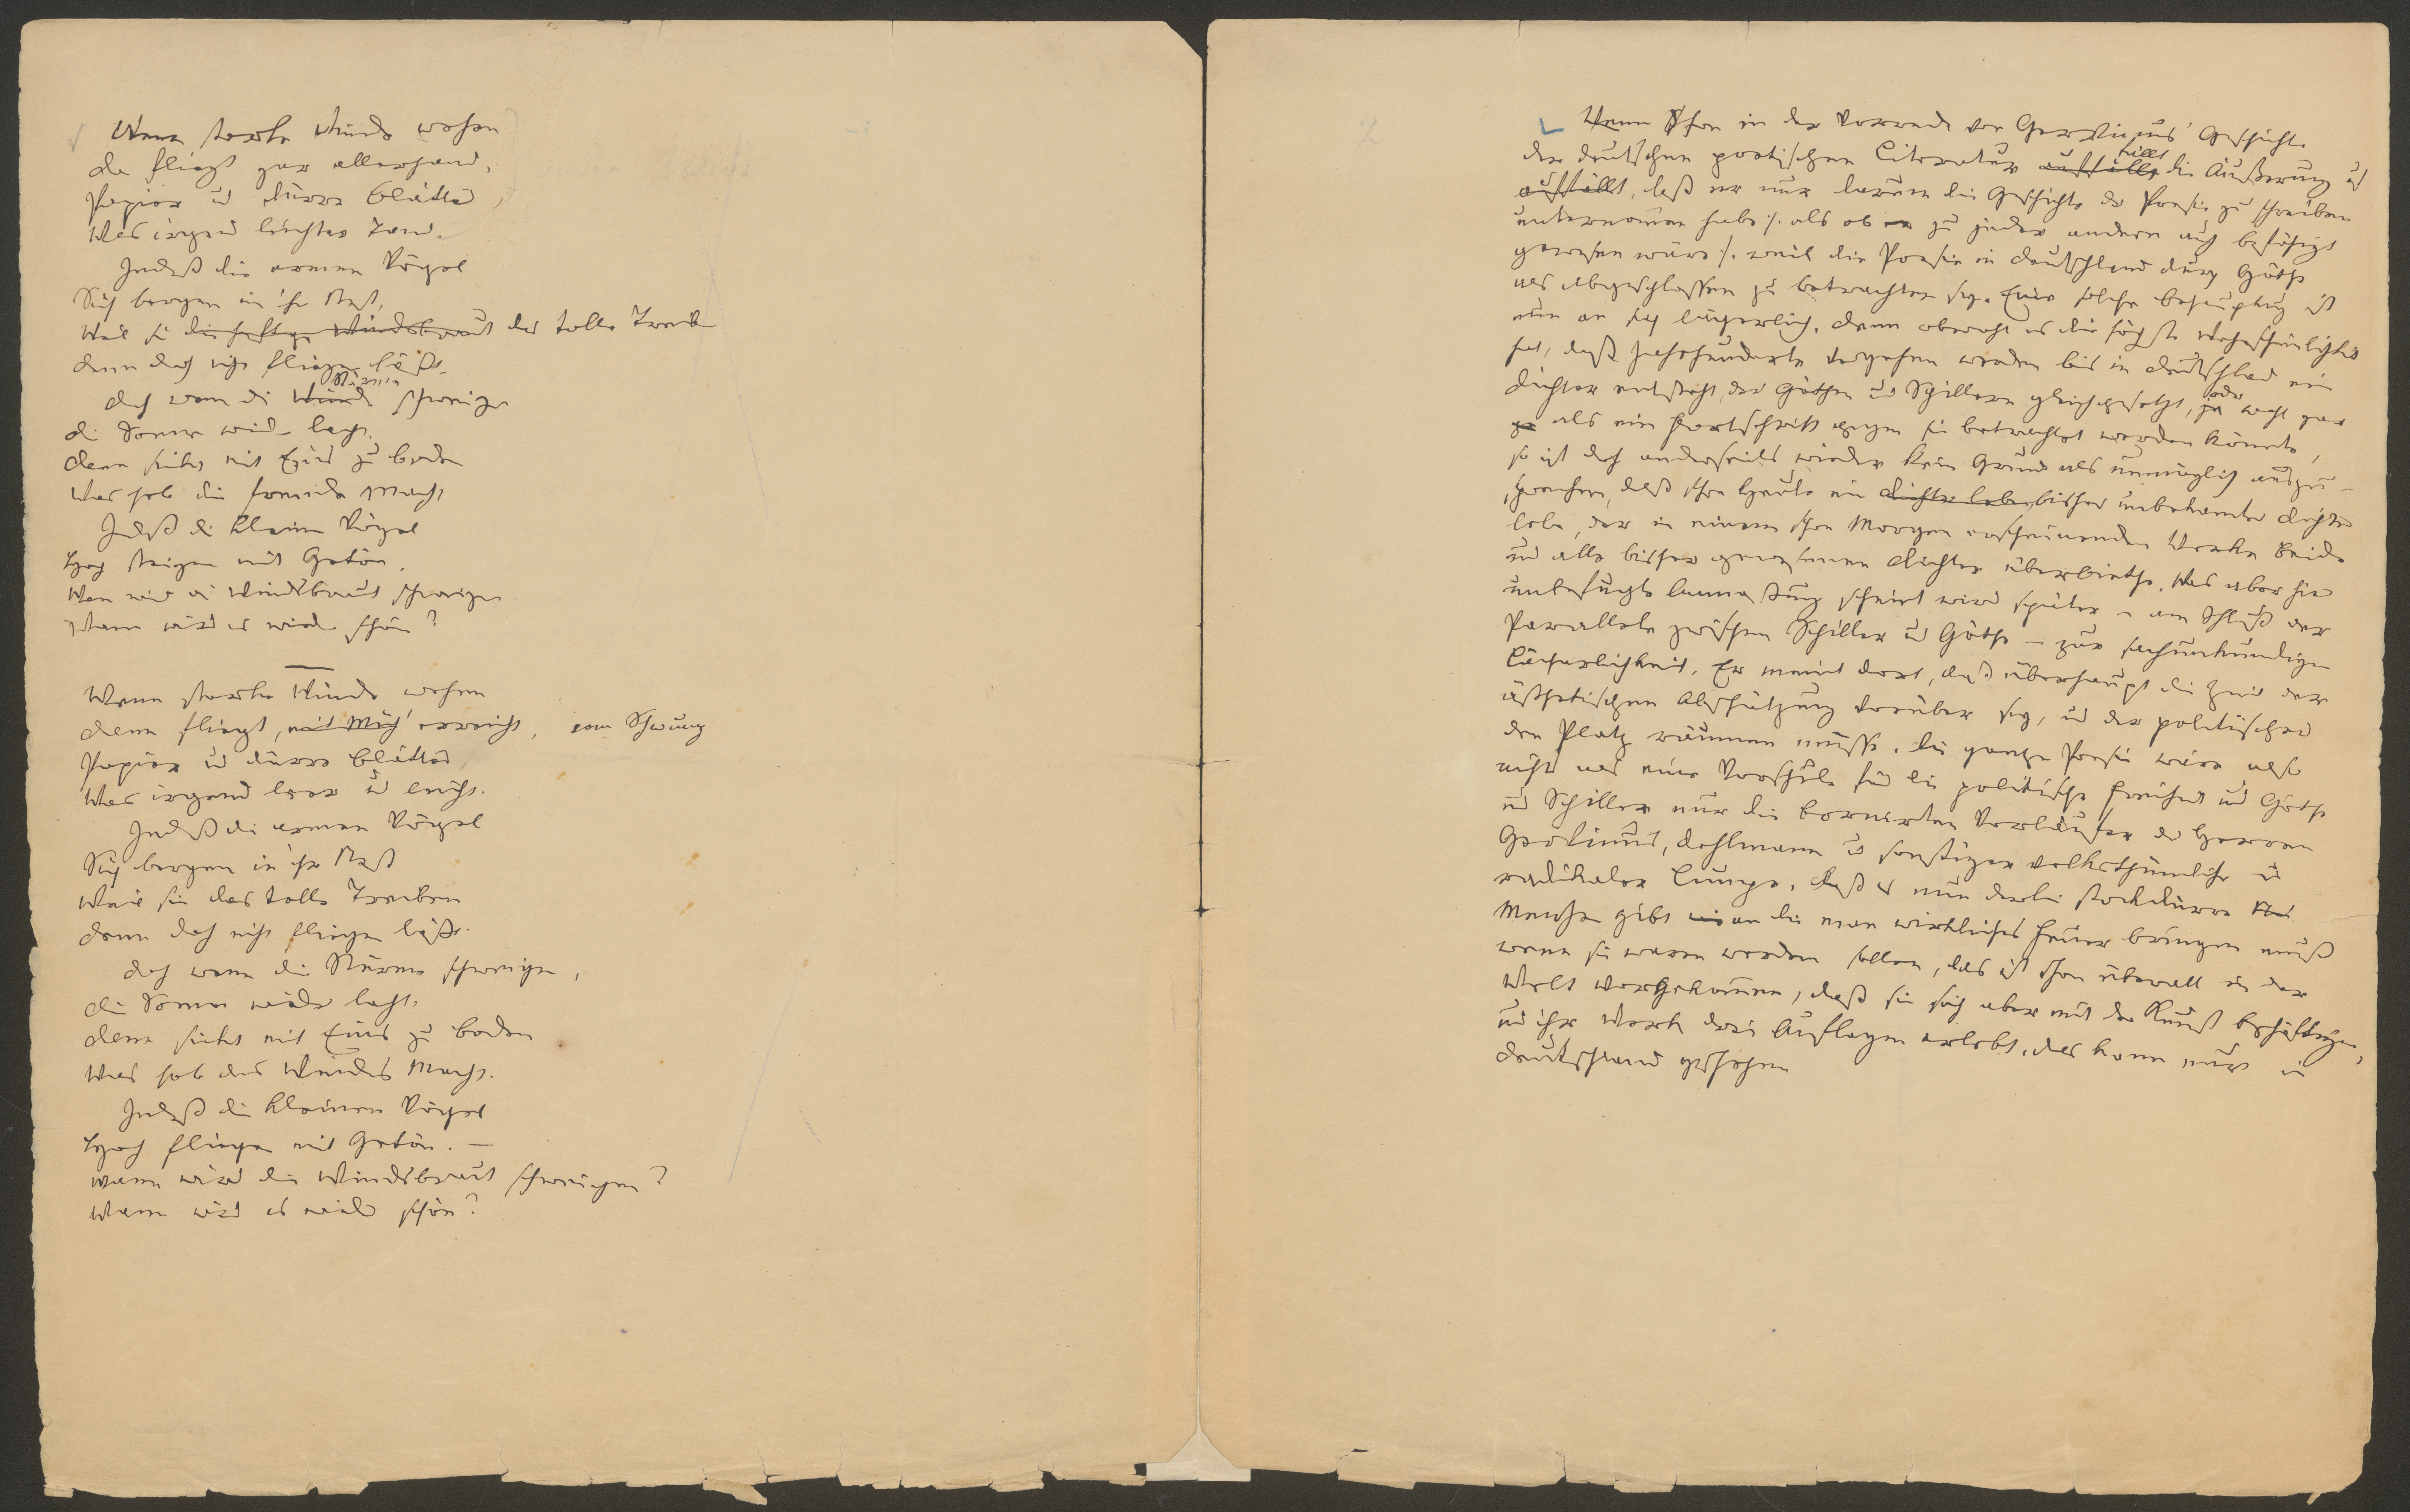 Wenn starke Winde wehen
Da fliegt gar allerhand,
Papier u dürre Blätter,
Was irgend leichter Tand.
Indeß die armen Vögel
Sich bergen in ihr Nest,
Weil sie die heftge Windsbraut das tolle Treib
Denn doch nicht fliegen läßt.
Stürme
Doch wenn die Winde schweigen
Die Sonne wieder lacht.
Dann sinkts mit Eins zu Boden
Was hob die fremde Macht
Indeß die kleinen Vögel
Hoch steigen mit Getön.
Wann wird die Windsbraut schweigen
Wann wird es wieder schön?
Wenn starke Winde wehen
Dann fliegt, mit Müh' erreicht, vom Schwung
Papier u dürre Blätter,
Was irgend leer u leicht.
Indeß die armen Vögel
Sich bergen in ihr Nest
Weil sie das tolle Treiben
Denn doch nicht fliegen läßt.
Doch wenn die Stürme schweigen,
Die Sonne wieder lacht.
Dann sinkt mit Eins zu Boden
Was hob des Windes Macht.
Indeß die kleinen Vögel
Hoch fliegen mit Getön. –
Wann wird die Windsbraut schweigen?
Wann wird es wieder schön?
2
Wenn schon in der Vorrede von Gervinus' Geschichte
fällt
der deutschen poetischen Literatur auffällt die Äußerung
auffällt, daß er nur darum die Geschichte der Poesie zu schreiben
unternommen habe /: als ob er zu jeder andern auch befähigt
gewesen wäre :/ weil die Poesie in Deutschland durch Göthe
als abgeschlossen zu betrachten sey. Eine solche Behauptung ist
nun an sich lächerlich, denn obwohl es die höchste Wahrscheinlichkeit
hat, daß Jahrhunderte vergehen werden bis in Deutschland ein
oder
Dichter entsteht, der Göthen und Schillern gleichgesetzt, ja wohl gar
als ein Fortschritt gegen sie betrachtet werden könnte,
so ist doch anderseits wieder kein Grund als unmöglich auszu-
sprechen, daß schon heute ein Dichter lebe bisher unbekannter Dichter
lebe, der in einem schon Morgen erscheinenden Werke Beide
und alle bisher gewesenen Dichter überbiethe. Was aber hier
unbefugte Anmaßung scheint wird später – am Schluß der
Parallele zwischen Schiller und Göthe – zur sachunkundigen
Lächerlichkeit. Er meint dort, daß überhaupt die Zeit der
ästhetischen Abschätzung vorüber sey, und der politischen
den Platz räumen müsse. Die ganze Poesie wäre also
nichts als eine Vorschule für die politische Freiheit und Göthe
und Schiller nur die bornirten Vorläufer der Herren
Gervinus, Dahlmann u sonstiger volksthümlicher u
radikaler Lumpe. Daß es nun derlei stockdürre
Menschen gibt an die man wirkliches Feuer bringen muß
wenn sie warm werden sollen, das ist schon überall in der
Welt vorgekommen, daß sie sich aber mit der Kunst beschäftigen,
und ihr Werk drei Auflagen erlebt, das kann nur in
Deutschland geschehen